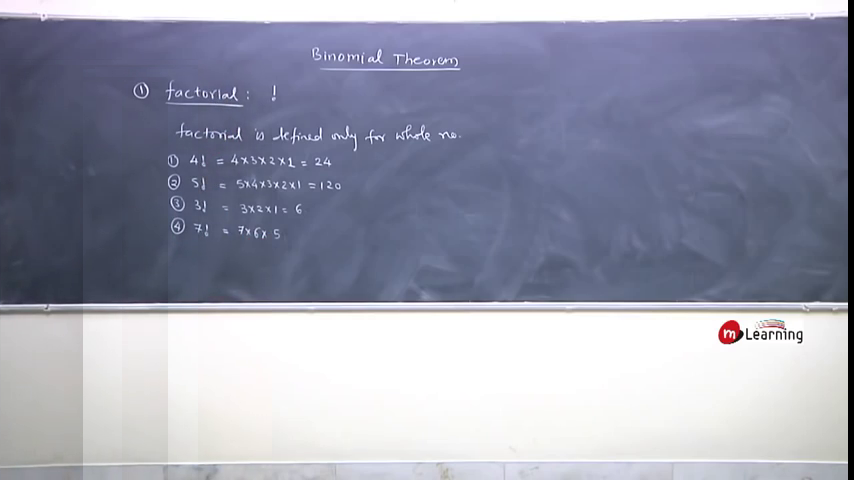 Binomial Theorem
① factorial : !
factorial is defined only for whole no.
① 4! = 4×3×2×1 = 24
② 5! = 5×4×3×2×1 = 120
③ 3! = 3×2×1 = 6
④ 7! = 7×6×5
m Learning